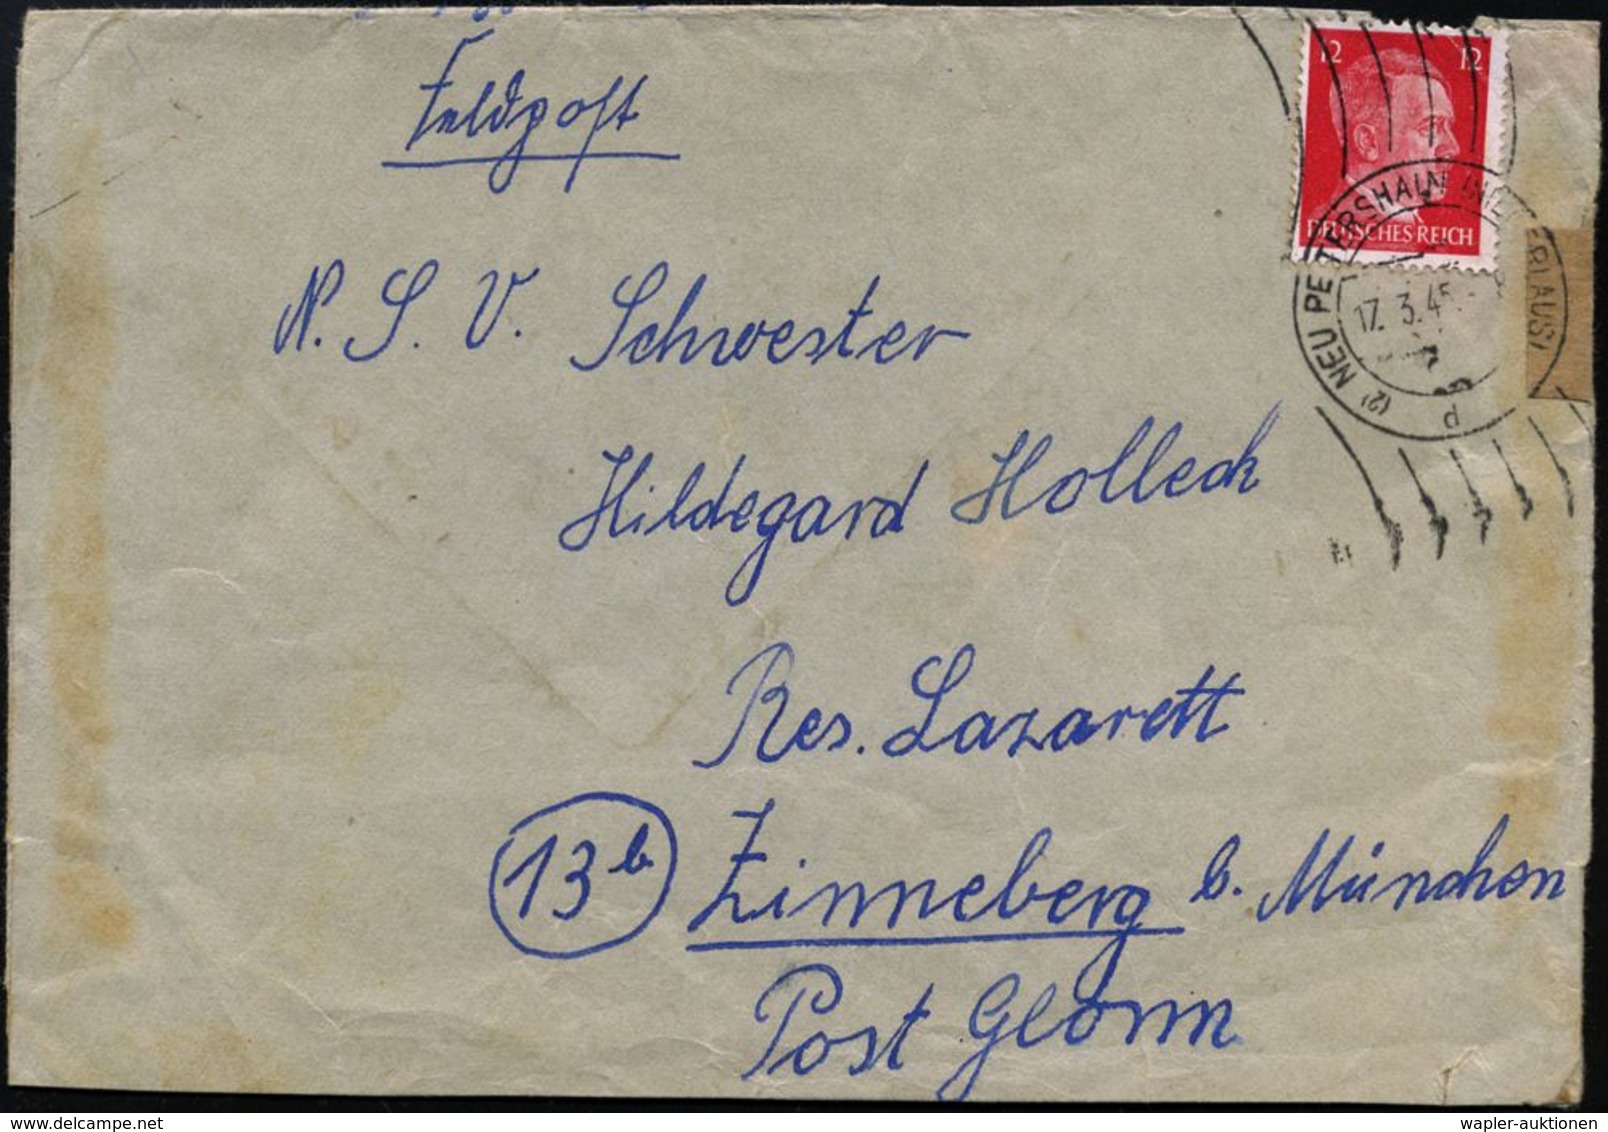 Feldpost
12 12
DEUTSCHES REICH
NEU PETERSHAIN
17. 3. 45
N. S. V. Schwester
Hildegard Holleck
Res. Lazarett
13b Zinneberg b. München
Post Glonn
wapler-auktionen